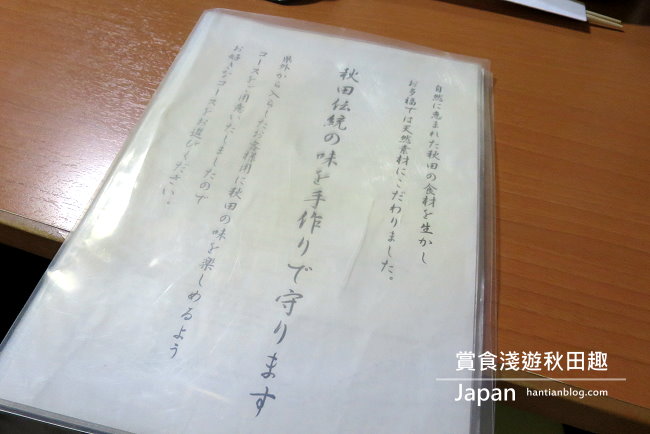 自然に恵まれた秋田の食材を生かし
お多福では天然素材にこだわりました。
秋田伝統の味を手作りで守ります
県外から入らしたお客様用に秋田の味を楽しめるよう
コースをご用意いたしましたので
お好きなコースをお選びください。
賞食淺遊秋田趣
Japan hantianblog.com